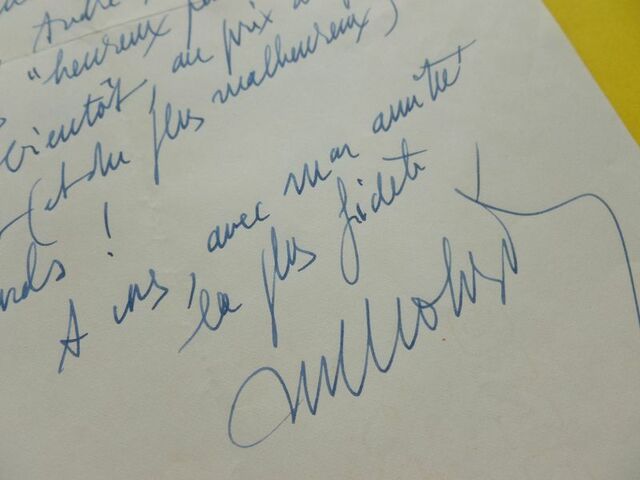 André
"heureux
bientôt, au prix
(et du plus malheureux)
!
A vous, avec mon amitié
la plus fidèle